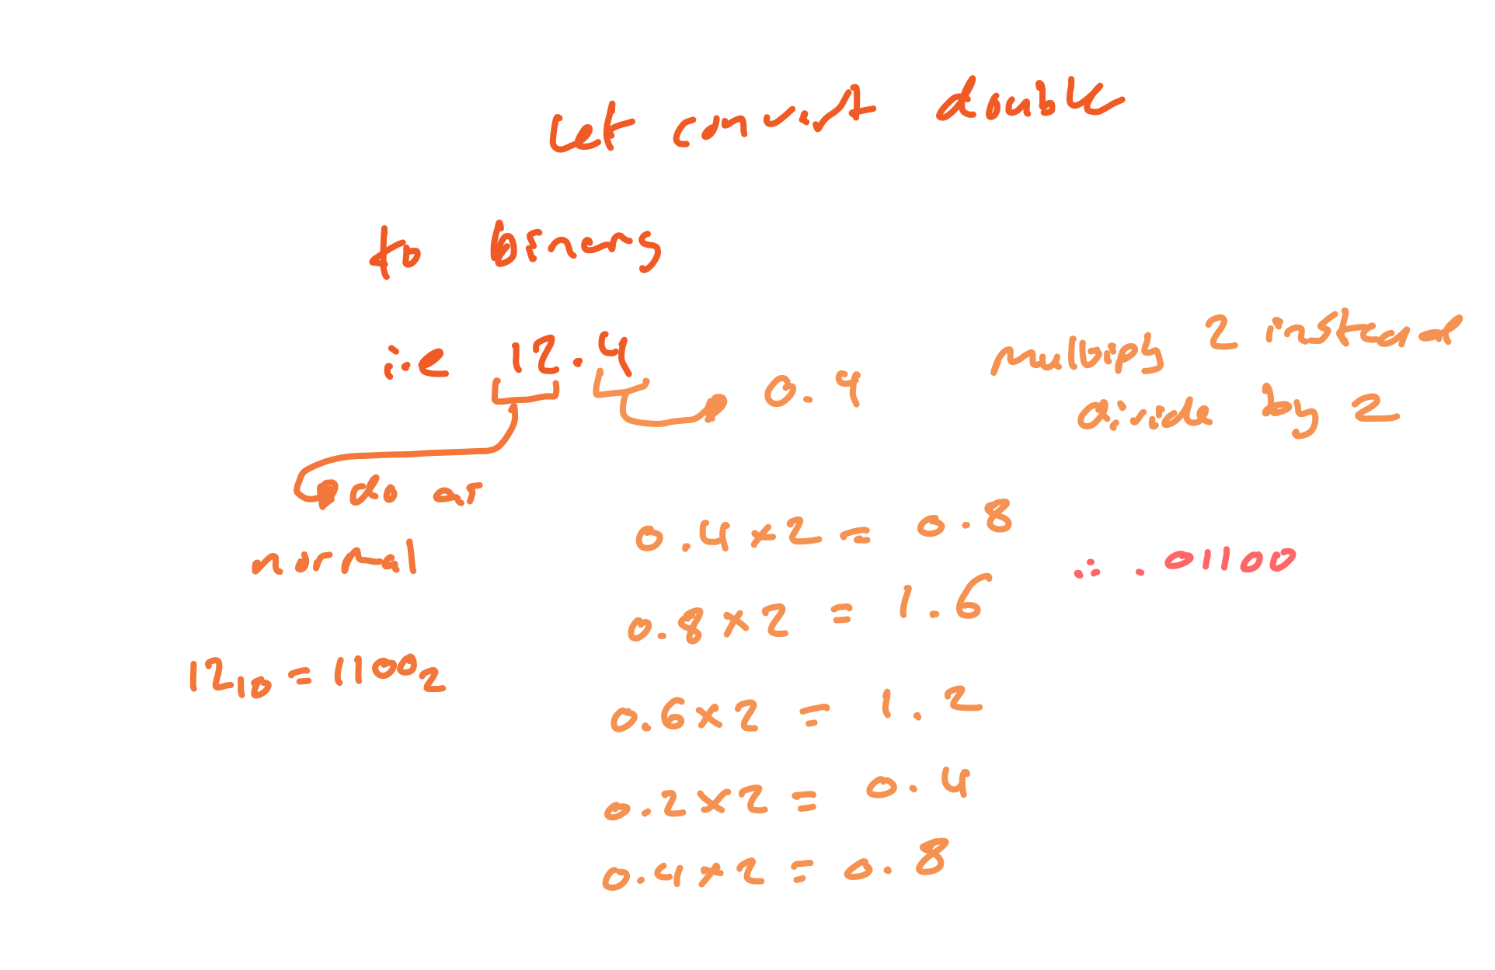 Let convert double
to binary
i.e 12.4
0.4
multiply 2 instead
divide by 2
do as
normal
12₁₀ = 1100₂
0.4 × 2 = 0.8
0.8 × 2 = 1.6
0.6 × 2 = 1.2
0.2 × 2 = 0.4
0.4 × 2 = 0.8
∴ .01100